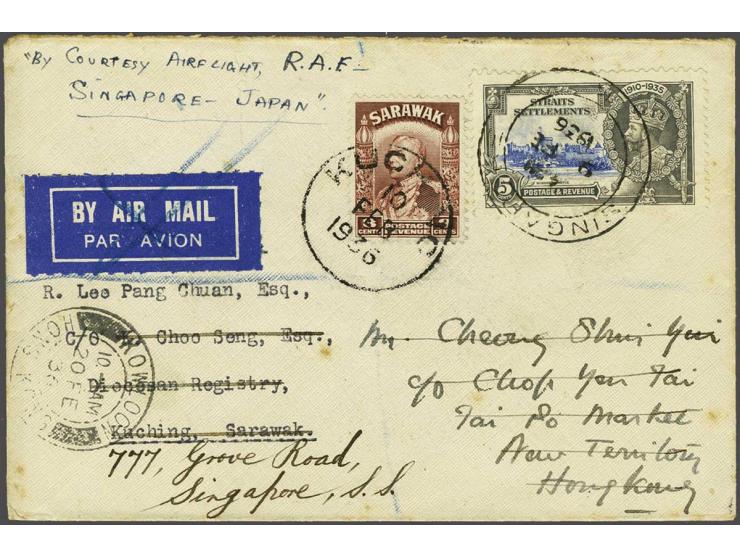 "BY COURTESY AIRFLIGHT, R.A.F—
SINGAPORE – JAPAN".
SARAWAK
POSTAGE
REVENUE
CENTS
1910-1935
STRAITS
SETTLEMENTS
5
POSTAGE & REVENUE
KUC
10
FEB
1936
SINGAP
BY AIR MAIL
PAR AVION
R. Lee Pang Chuan, Esq.,
C/o Choo Seng, Esq.,
Diocesan Registry,
Kuching, Sarawak.
777, Grove Road,
Singapore, S.S.
KOWLOON
10 AM
20 FE
36
HONG KONG
Mr. Cheong Shui Yui
c/o Chop Yen Tai
Tai Po Market
New Territory
Hongkong